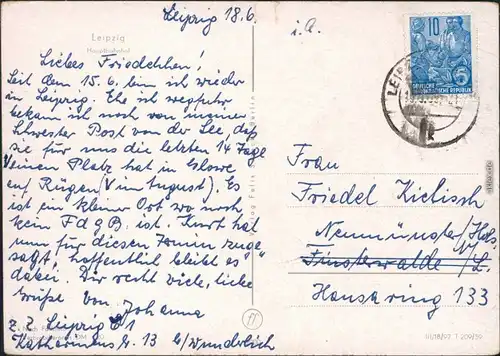 Leipzig 18.6.
Leipzig
Hauptbahnhof
Liebes Friedelchen!
Seit dem 15.6. bin ich wieder
in Leipzig. Ehe ich wegfuhr,
bekam ich noch von meiner
Schwester Post von der See, daß
sie für uns die letzten 14 Tage
einen Platz hat in Glowe
auf Rügen (im August). Es
ist ein kleiner Ort wo noch
kein FdgB. ist. Kurt hat
nun für diesen Termin zuge-
sagt, hoffentlich bleibt es
dabei. Dir recht viele, liebe
Grüße von Johanna
z. Z. Leipzig
13 b/Wunderlich
i. A.
10
DEUTSCHE
DEMOKRATISCHE REPUBLIK
5
LEIPZ
Frau
Friedel Kietisch
Neumünster/Hols.
Finsterwalde /L.
Hansaring 133